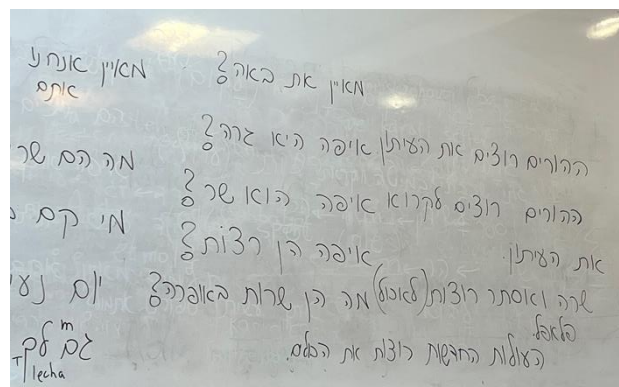 מאיין את באה? מאיין אנחנו
אתם
ההורים רוצים את העיתון איפה היא גרה?
מה הם שר
ההורים רוצים לקרוא איפה הוא שר?
מי קם
את העיתון. איפה הן רצות?
שרה ואסתר רוצות (לאכול) מה הן שרות באופרה? יום
פלאפל.
העולות החדשות רוצות את גם לך
m
lecha